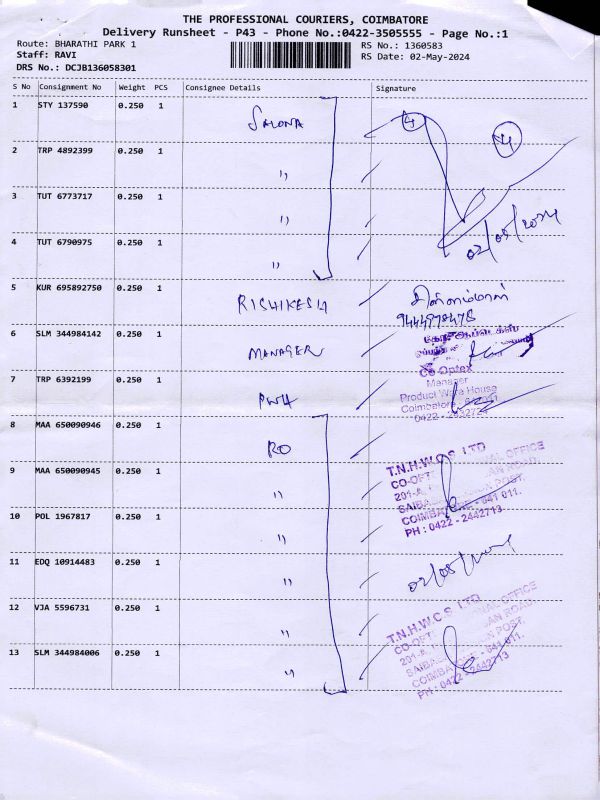 THE PROFESSIONAL COURIERS, COIMBATORE
Delivery Runsheet - P43 - Phone No.:0422-3505555 - Page No.:1
Route: BHARATHI PARK 1 RS No.: 1360583
Staff: RAVI RS Date: 02-May-2024
DRS No.: DCJB136058301
S No Consignment No Weight PCS Consignee Details Signature
1 STY 137590 0.250 1 SALONA 4 4
2 TRP 4892399 0.250 1 "
3 TUT 6773717 0.250 1 "
4 TUT 6790975 0.250 1 " 02/05/2024
5 KUR 695892750 0.250 1 RISHIKESH
6 SLM 344984142 0.250 1 MANAGER
Co Optex
Manager
7 TRP 6392199 0.250 1 PWH Product Ware House
Coimbatore
8 MAA 650090946 0.250 1 RO
T.N.H.W.C.S LTD
9 MAA 650090945 0.250 1 "
COIMBATORE - 641 011.
PH : 0422 - 2442713
10 POL 1967817 0.250 1 "
11 EDQ 10914483 0.250 1 " 02/05/2024
12 VJA 5596731 0.250 1 "
T.N.H.W.C.S LTD
13 SLM 344984006 0.250 1 "
COIMBATORE - 641 011.
PH : 0422 - 2442713